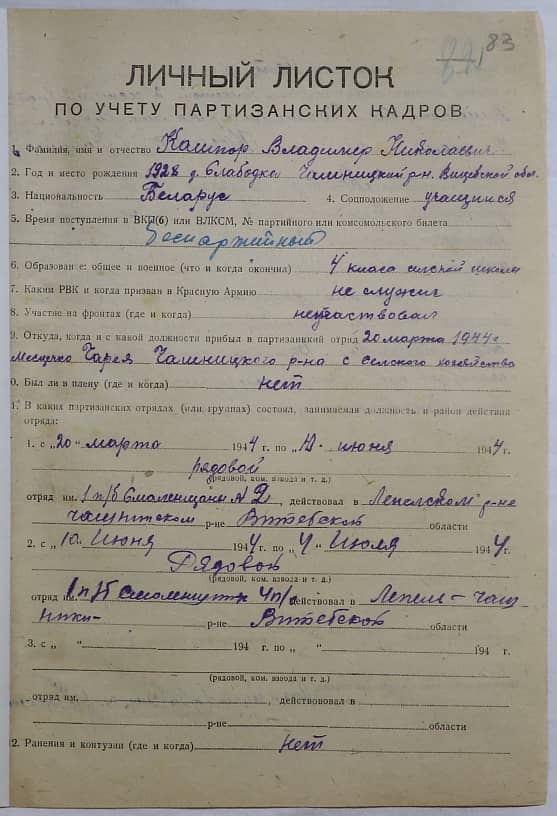 83
ЛИЧНЫЙ ЛИСТОК
ПО УЧЕТУ ПАРТИЗАНСКИХ КАДРОВ
1. Фамилия, имя и отчество Кашпор Владимер Николаевич
2. Год и место рождения 1928 д. Слабодка Чашницкий р-н. обл.
3. Национальность Беларус 4. Соцположение учащийся
5. Время поступления в ВКП(б) или ВЛКСМ, № партийного или комсомольного билета
Беспартийный
6. Образование: общее и военное (что и когда окончил) 4 класа школи
7. Каким РВК и когда призван в Красную Армию не служил
8. Участие на фронтах (где и когда) неучаствовал
9. Откуда, когда и с какой должности прибыл в партизанский отряд 20 марта 1944 г.
месцечко Чарея Чашницкого р-на с селского хозяйства
0. Был ли в плену (где и когда) нет
1. В каких партизанских отрядах (или группах) состоял, занимаемая должность и район действия
отряда:
1. с „20“ марта 1944 г. по „10“ июня 1944 г.
рядовой
(рядовой, ком. взвода и т. д.)
отряд им. 1 п/б Смоленщины № 2, действовал в Лепелском р-не
р-не Витебской области
2. с „10 Июня 1944 г. по „4“ Июля 1944 г.
Рядовой
(рядовой, ком. взвода и т. д.)
отряд им. 1 п/б 4 п/о действовал в Лепел-Чаш-
ники- р-не Витебской области
3. с „ “ 194 г. по „ “ 194 г.
(рядовой, ком. взвода и т. д.)
отряд им. , действовал в
р-не области
2. Ранения и контузии (где и когда) нет